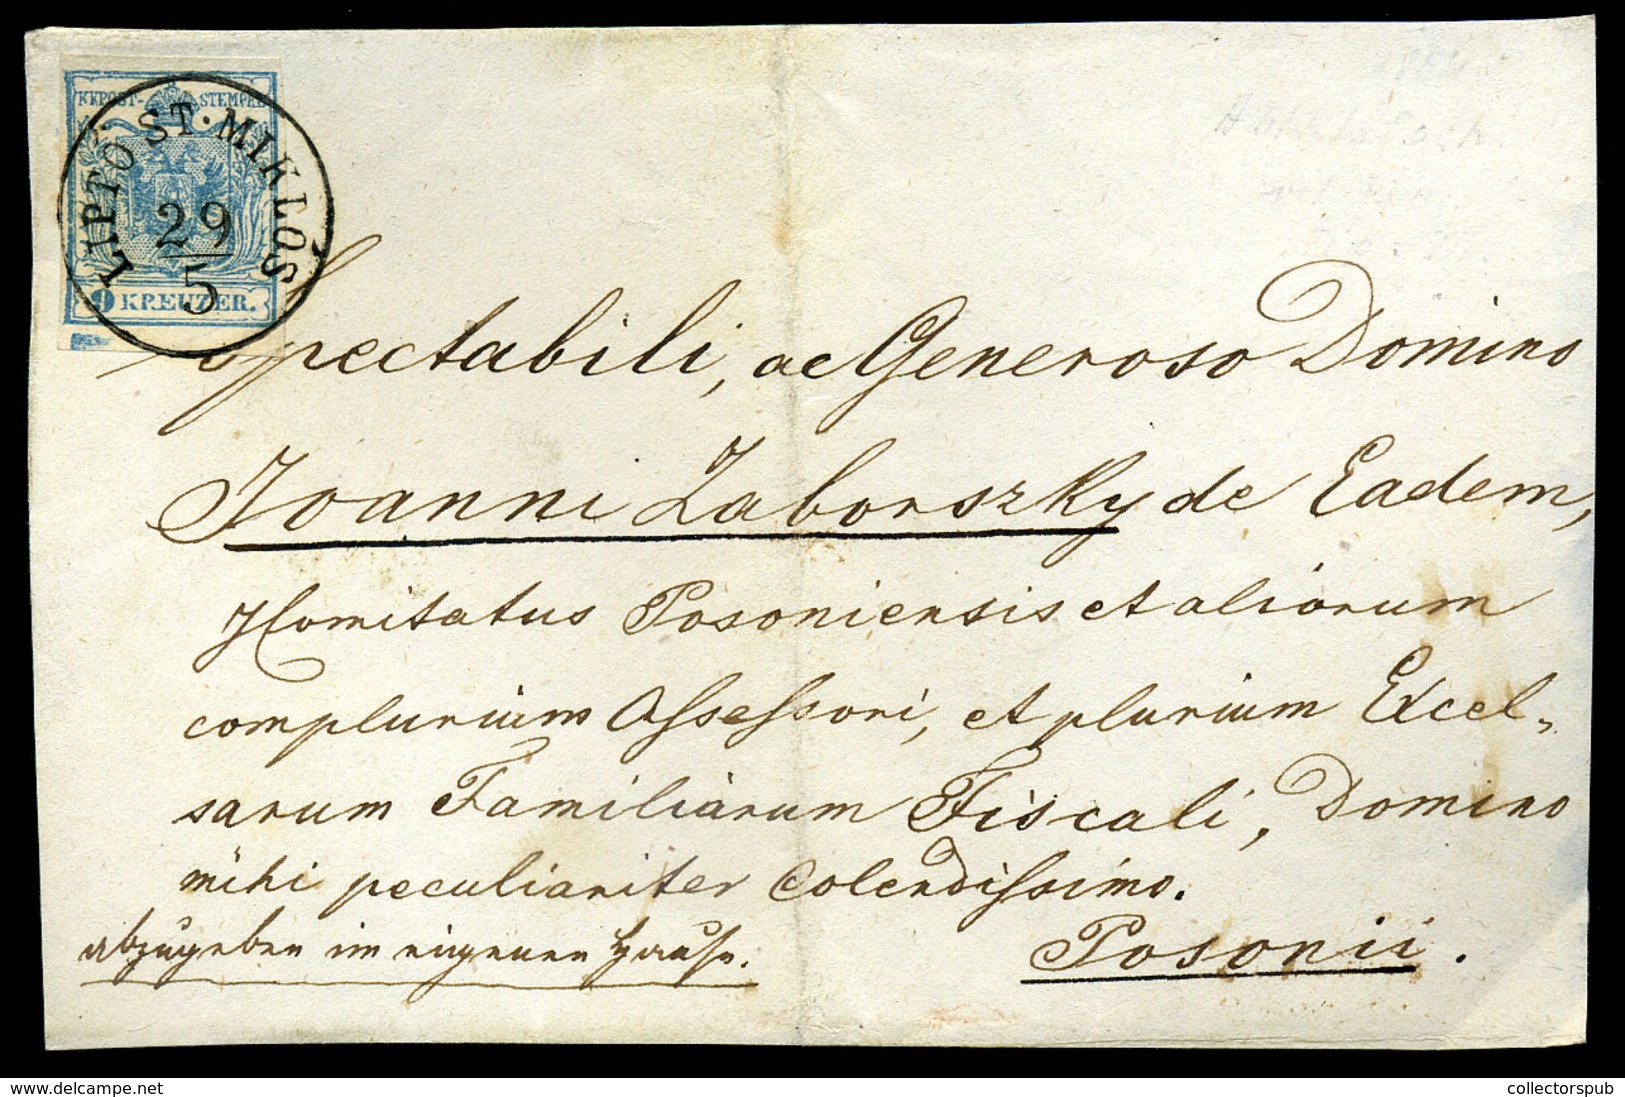 KKPOST-STEMPEL
LIPTÓ ST. MIKLÓS
29
5
9 KREUZER.
Spectabili, ac Generoso Domino
Joanni Zaborszky de Eadem,
Comitatus Posoniensis et aliorum
complurium Assessori, et plurium Excel-
sarum Familiarum Fiscali, Domino
mihi peculiariter Colendissimo.
abzugeben im eigenen Hause.
Posonii.
www.delcampe.net
collectorspub